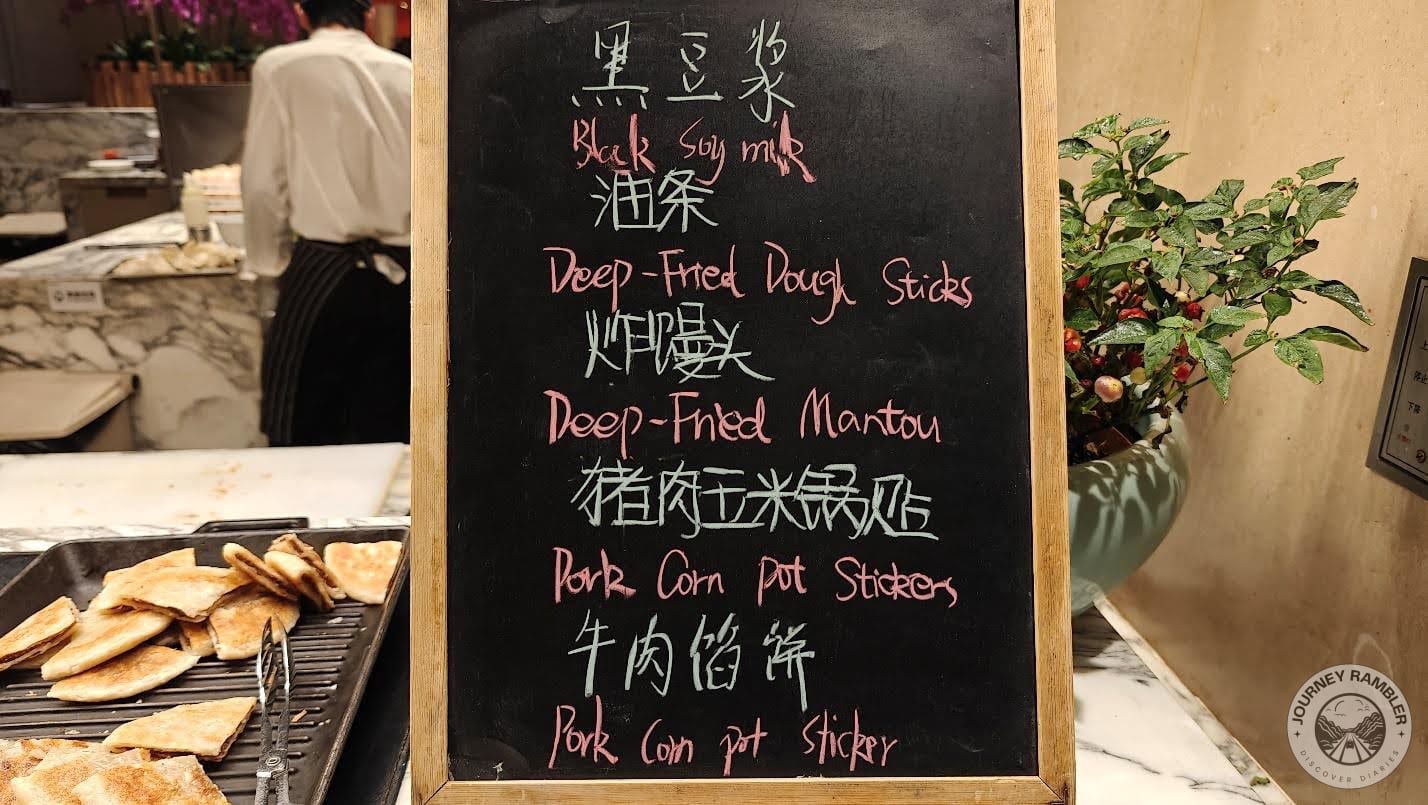 黑豆浆
Black Soy milk
油条
Deep-Fried Dough Sticks
炸馒头
Deep-Fried Mantou
猪肉玉米锅贴
Pork Corn pot Stickers
牛肉馅饼
Pork Corn pot Sticker
JOURNEY RAMBLER
DISCOVER DIARIES